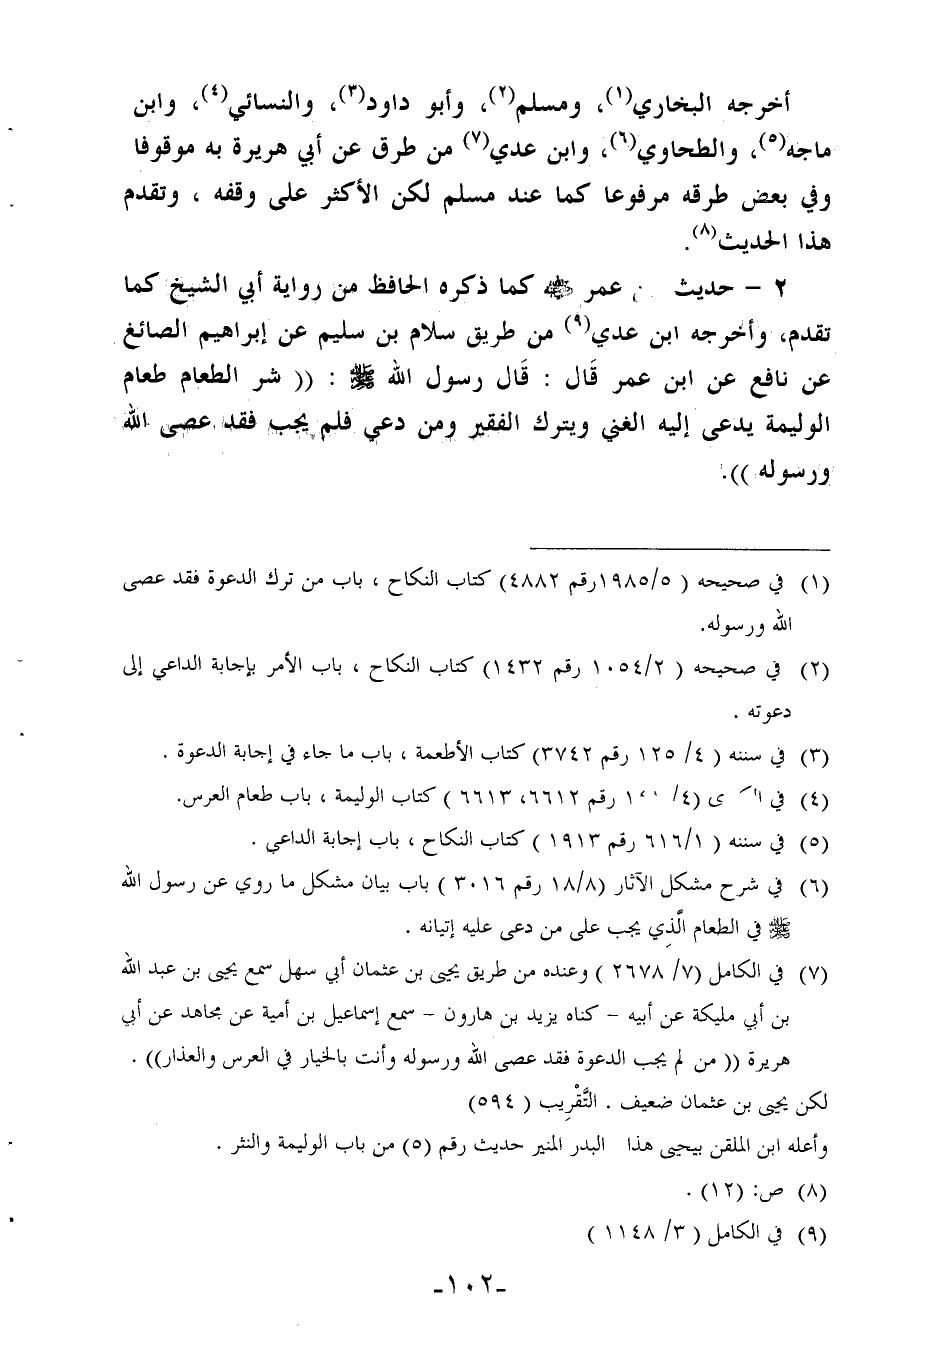 أخرجه البخاري(١)، ومسلم(٢)، وأبو داود(٣)، والنسائي(٤)، وابن
ماجه(٥)، والطحاوي(٦)، وابن عدي(٧) من طرق عن أبي هريرة به موقوفا
وفي بعض طرقه مرفوعا كما عند مسلم لكن الأكثر على وقفه ، وتقدم
هذا الحديث(٨).
٢ – حديث عمر ﷺ كما ذكره الحافظ من رواية أبي الشيخ كما
تقدم، وأخرجه ابن عدي(٩) من طريق سلام بن سليم عن إبراهيم الصائغ
عن نافع عن ابن عمر قَال : قَال رسول الله ﷺ : (( شر الطعام طعام
الوليمة يدعى إليه الغني ويترك الفقير ومن دعي فلم يجب فقد عصى الله
ورسوله )).
(١) في صحيحه ( ١٩٨٥/٥رقم ٤٨٨٢) كتاب النكاح ، باب من ترك الدعوة فقد عصى
الله ورسوله.
(٢) في صحيحه ( ١٠٥٤/٢ رقم ١٤٣٢) كتاب النكاح ، باب الأمر بإجابة الداعي إلى
دعوته .
(٣) في سننه ( ٤/ ١٢٥ رقم ٣٧٤٢) كتاب الأطعمة ، باب ما جاء في إجابة الدعوة .
(٤) في (٤/ رقم ٦٦١٢، ٦٦١٣ ) كتاب الوليمة ، باب طعام العرس.
(٥) في سننه ( ٦١٦/١ رقم ١٩١٣ ) كتاب النكاح ، باب إجابة الداعي .
(٦) في شرح مشكل الآثار (١٨/٨ رقم ٣٠١٦ ) باب بيان مشكل ما روي عن رسول الله
ﷺ في الطعام الَّذِي يجب على من دعى عليه إتيانه .
(٧) في الكامل (٧/ ٢٦٧٨ ) وعنده من طريق يحيى بن عثمان أبي سهل سمع يحيى بن عبد الله
بن أبي مليكة عن أبيه – كناه يزيد بن هارون – سمع إسماعيل بن أمية عن مجاهد عن أبي
هريرة (( من لم يجب الدعوة فقد عصى الله ورسوله وأنت بالخيار في العرس والعذار)) .
لكن يحيى بن عثمان ضعيف . التَّقْرِيب ( ٥٩٤)
وأعله ابن الملقن بيحيى هذا البدر المنير حديث رقم (٥) من باب الوليمة والنثر .
(٨) ص: (١٢) .
(٩) في الكامل ( ٣/ ١١٤٨ )
-١٠٢-